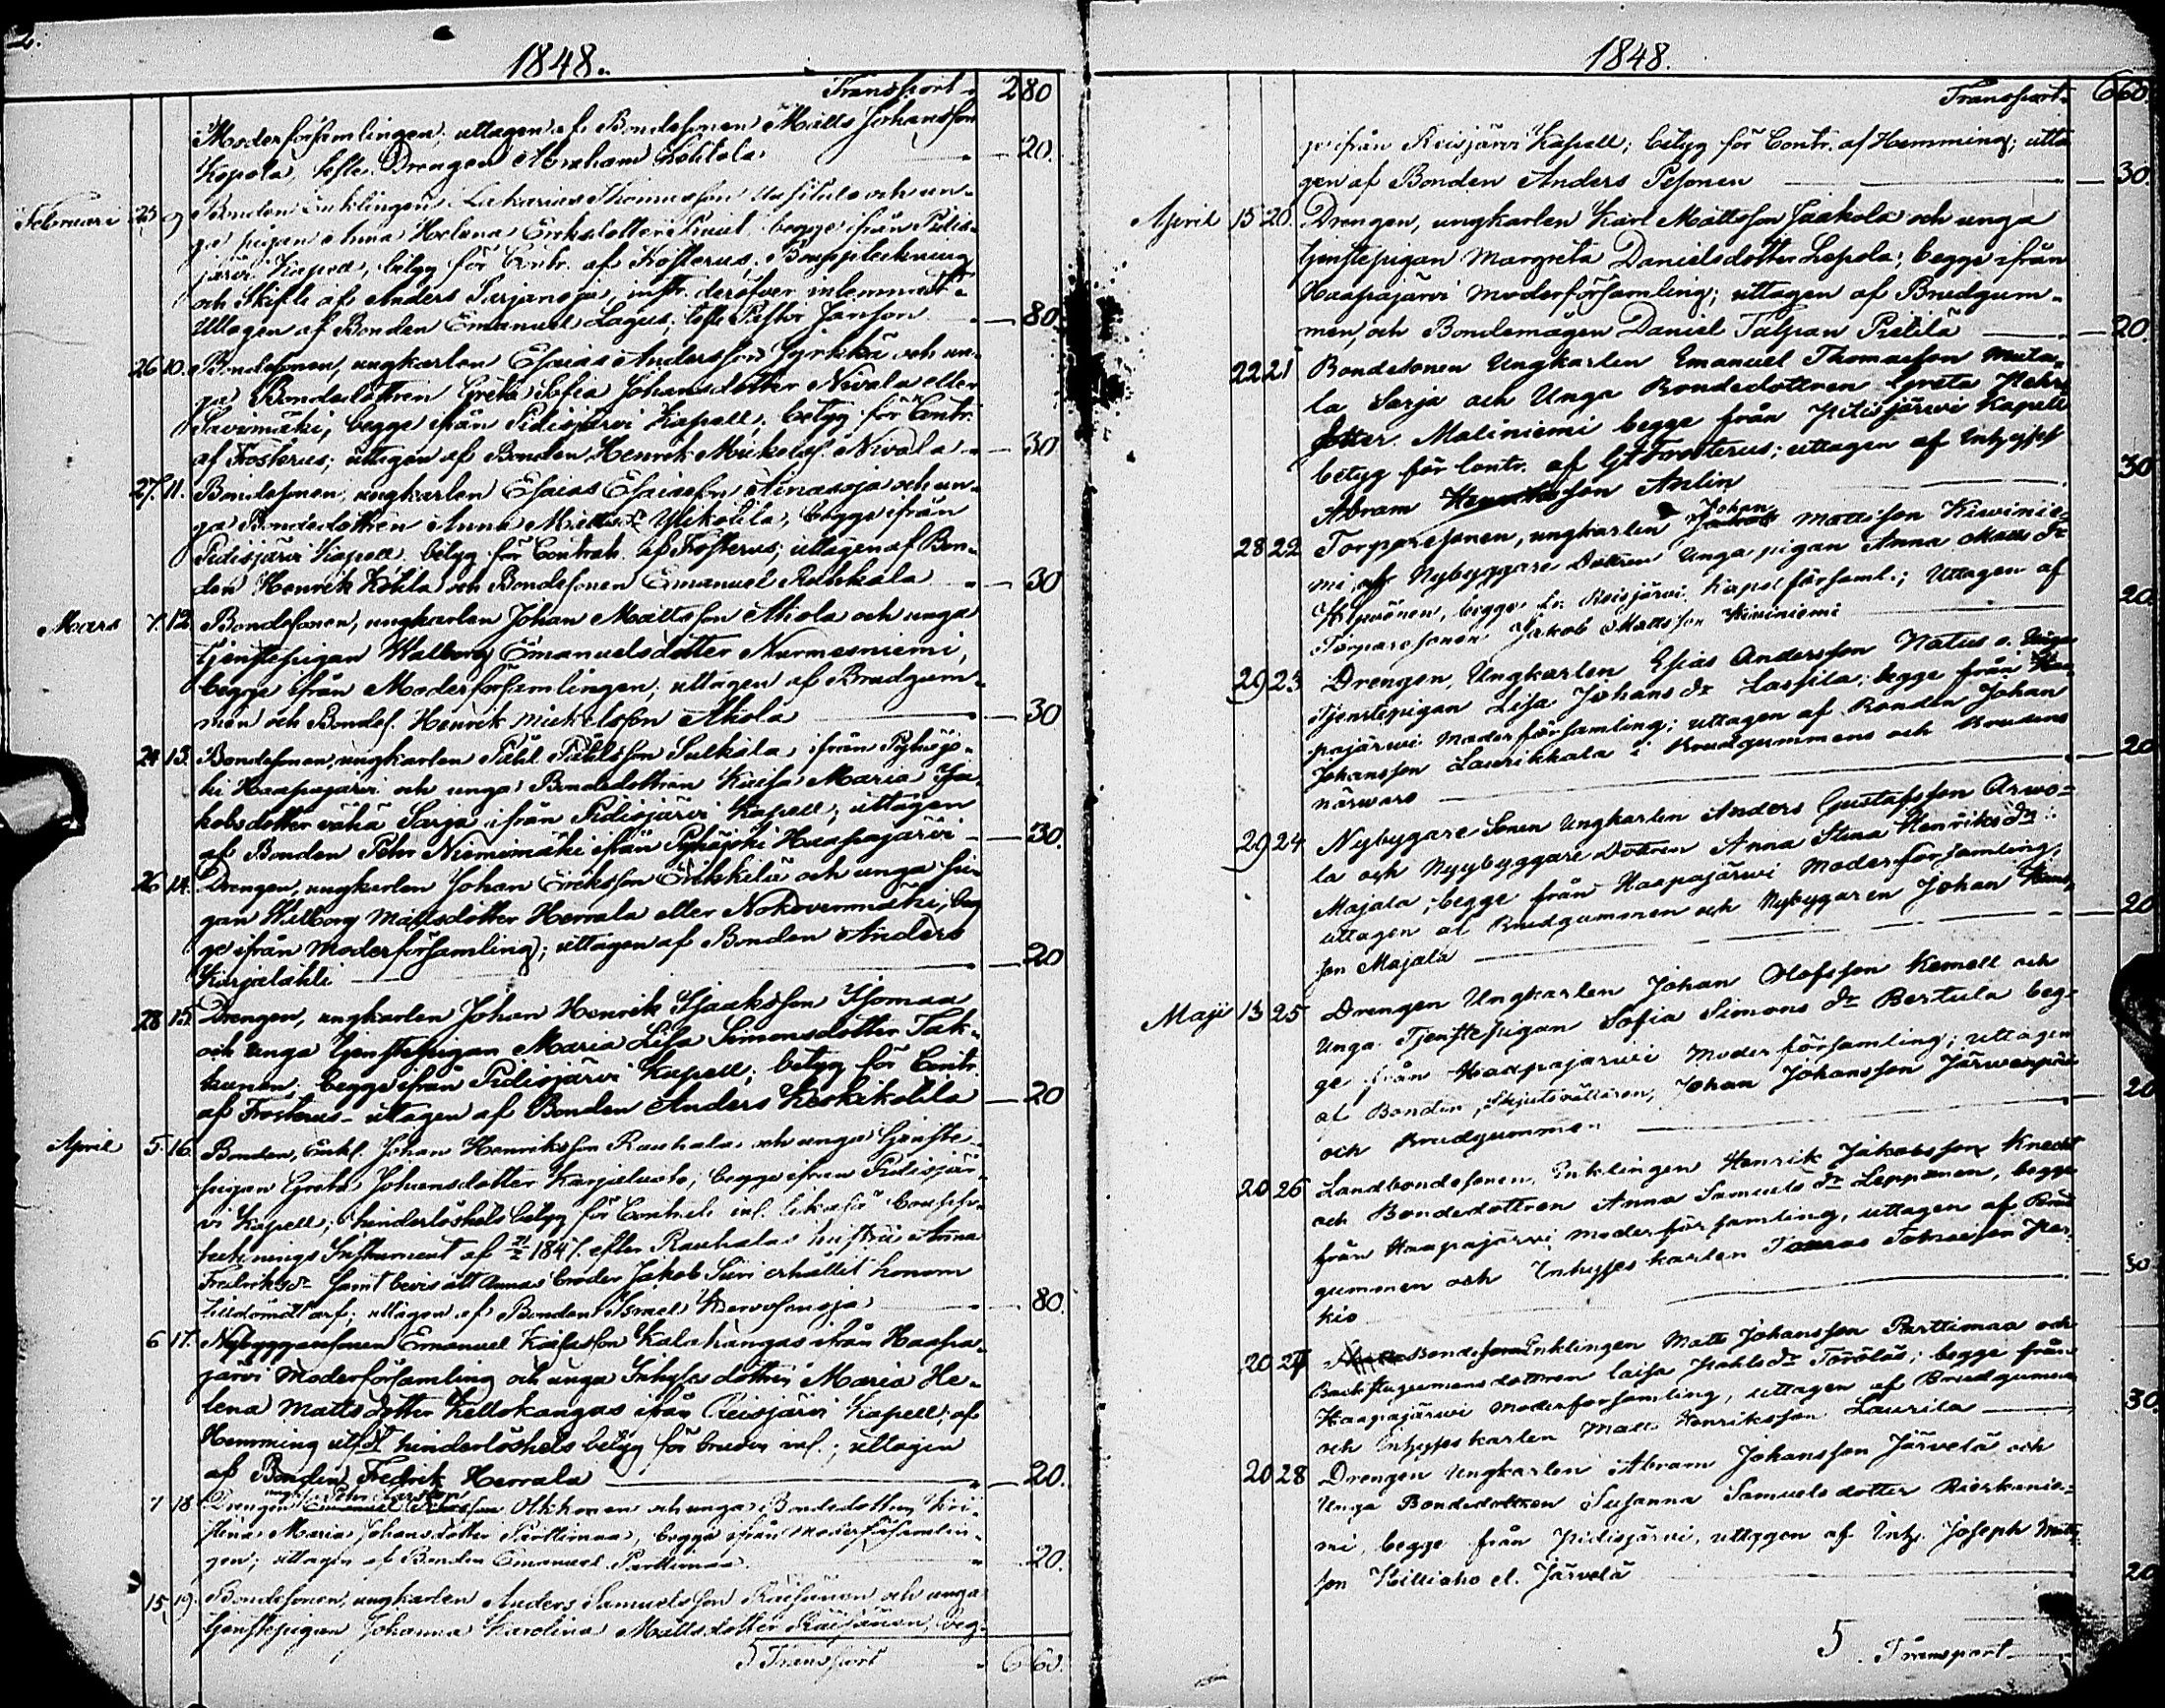 2.
1848.
Transport 280
Moderförsamlingen; uttagen af Bondesonen Matts Johansson
Kopola, teste. Drengen Abraham Kohtala 20.
Februari 25 9 Bonden Enklingen Zakarias Thomasson och un-
ga pigan Anna Helena Eriksdotter begge ifrån Pidis-
järvi Kapell, betyg för Contr. af Frosterus; Bouppteckning
och Skifte af Anders Sarjanoja, instr. deröfver
Uttagen af Bonden Emanuel Lagus; teste Pastor Janson 80.
26 10. Bondesonen, ungkarlen Esaias Andersson Jyrkkä och un-
ga Bondedottren Greta Sofia Johansdotter Nivala eller
Savimäki, begge ifrån Pidisjärvi Kapell, betyg för Contr.
af Frosterus; uttagen af Bonden Henrik Mickelss. Nivala 30
27. 11. Bondesonen, ungkarlen Esaias Esaiasson Ainasoja och un-
ga Bondedottren Anna Mattsdr Ylikotila, begge ifrån
Pidisjärvi Kapell, betyg för Contrah. af Frosterus; uttagen af Bon-
den Henrik Kotila och Bondesonen Emanuel Rahkala 30
Mars 7. 12. Bondesonen, ungkarlen Johan Mattsson Ahola och unga
tjenstepigan Walborg Emanuelsdotter Nurmesniemi,
begge ifrån Moderförsamlingen, uttagen af Brudgum-
men och Bondes. Henrik Mickelsson Ahola 30
24 13. Bondesonen, ungkarlen Påhl Påhlsson Sulkala ifrån Pyhäjo-
ki Haapajärvi och unga Bondedottren Kaisa Maria Ja-
kobsdotter vähä Sarja ifrån Pidisjärvi Kapell; uttagen
af Bonden Petr Niemimäki ifrån Pyhäjoki Haapajärvi 30.
26 14. Drengen, ungkarlen Johan Eriksson Erikkilä och unga pi-
gan Walborg Mattsdotter Herrala eller Nokovenmäki, beg
ge ifrån Moderförsamling; uttagen af Bonden Anders
Karjalahti 20
28 15. Drengen, ungkarlen Johan Henrik Isaaksson Isomaa
och unga tjenstepigan Maria Lisa Simonsdotter Tak-
kunen, begge ifrån Pidisjärvi Kapell; betyg för Contr.
af Frosterus - uttagen af Bonden Anders Keskikotila 20
April 5. 16. Bonden, Enkl. Johan Henriksson Rauhala och unga tjenste-
pigan Greta Johansdotter Karjaluoto, begge ifrån Pidisjär-
vi Kapell; hinderlöshets betyg för Contrah. inl. likaså Boupp-
tecknings Instrument af 21/2 1847. efter Rauhalas hustru Anna
Fredriksdr samt bevis att Annas broder Jakob Suvi erhållit honom
tilldömdt arf; uttagen af Bonden Israel 80.
6 17. Nybyggaresonen Emanuel Kalahangas ifrån Haapa-
järvi Moderförsamling och unga Inhyses dottren Maria He-
lena Mattsdotter Kellokangas ifrån Reisjärvi Kapell; af
Hemming utfdt hinderlöshets betyg för bruden inl.; uttagen
af Bonden Fredrik Herrala 20.
7 18. Drengen Olkkonen och unga Bondedottren Kri-
stina Maria Johansdotter Parttimaa, begge ifrån Moderförsamlin-
gen; uttagen af Bonden Emanuel Parttimaa 20.
15 19. Bondesonen, ungkarlen Anders Samuelsson Räisänen och unga
tjenstepigan Johanna Karolina Mattsdotter Räisänen, beg-
5 Transport 660.
1848.
Transport 660.
ge ifrån Reisjärvi Kapell; betyg för Contr. af Hemming; utta
gen af Bonden Anders Pesonen 30.
April 15 20. Drengen, ungkarlen Karl Mattsson Jaakola och unga
tjenstepigan Margreta Danielsdotter Lepola, begge ifrån
Haapajärvi Moderförsamling; uttagen af Brudgum-
men, och Bondemågen Daniel Prittilä 20.
22 21 Bondesonen Ungkarlen Emanuel Thomasson
la Sarja och Unga Bondedottren Greta
dotter Maliniemi begge från Pitisjärwi Kapell
betyg för Contr. af Gl Frosterus; uttagen af Inhyses
Abram Anlin 30
28 22 Torparesonen, ungkarlen Johan Mattsson Kiwinie-
mi, Nybyggare Dottren Unga pigan Anna Matts dr
begge fr. Reisjärvi Kapelförsaml.; Uttagen af
Torparesonen Jakob Mattsson Kiwiniemi 20
29 23 Drengen, Ungkarlen Esias Andersson Natus o. Unga
tjenstepigan Lisa Johans dr Lassila; begge från Haa-
pajärwi Moderförsamling; uttagen af Bonden Johan
Johansson Laurikkala i Brudgummens och Brudens
närwaro 20
29 24 Nybygare Sonen Ungkarlen Anders Gustafsson Arwo-
la och Nybyggare Dottren Anna Stina Henriks dr
Majala, begge från Haapajärwi Moderförsamling,
uttagen af Brudgummen och Nybygaren Johan
son Majala 20
Maji 13 25 Drengen Ungkarlen Johan Olofsson Kemell och
Unga Tjenstepigan Sofia Simons dr Bertula beg-
ge från Haapajarwi Moderförsamling; uttagen
af Bonden, Skjutsrättaren, Johan Johansson Järwenpää
och Brudgumme. 20
20 26 Landbondesonen, Enklingen Henrik Jakobsson Knecht
och Bondedottren Anna Samuels dr Leppänen, begge
från Haapajärvi Moderförsamling, uttagen af Brud
gummen och Inhyses karlen Tomas
kio 30
20 27 Bondesonen Enklingen Matts Johansson Parttimaa och
Backstugumansdottren Caisa Pahls dr Törölas; begge från
Haapajärwi Moderförsamling, uttagen af Brudgummen
och Inhyses karlen Matts Henriksson Laurila 30.
20 28 Drengen Ungkarlen Abram Johansson Järvelä och
Unga Bondedottren Susanna Samuels dotter Rierkanie-
mi, begge från Pidisjärvi, uttagen af Inh. Joseph Matts-
son Killiaho el. Järvelä 20
5 Transport